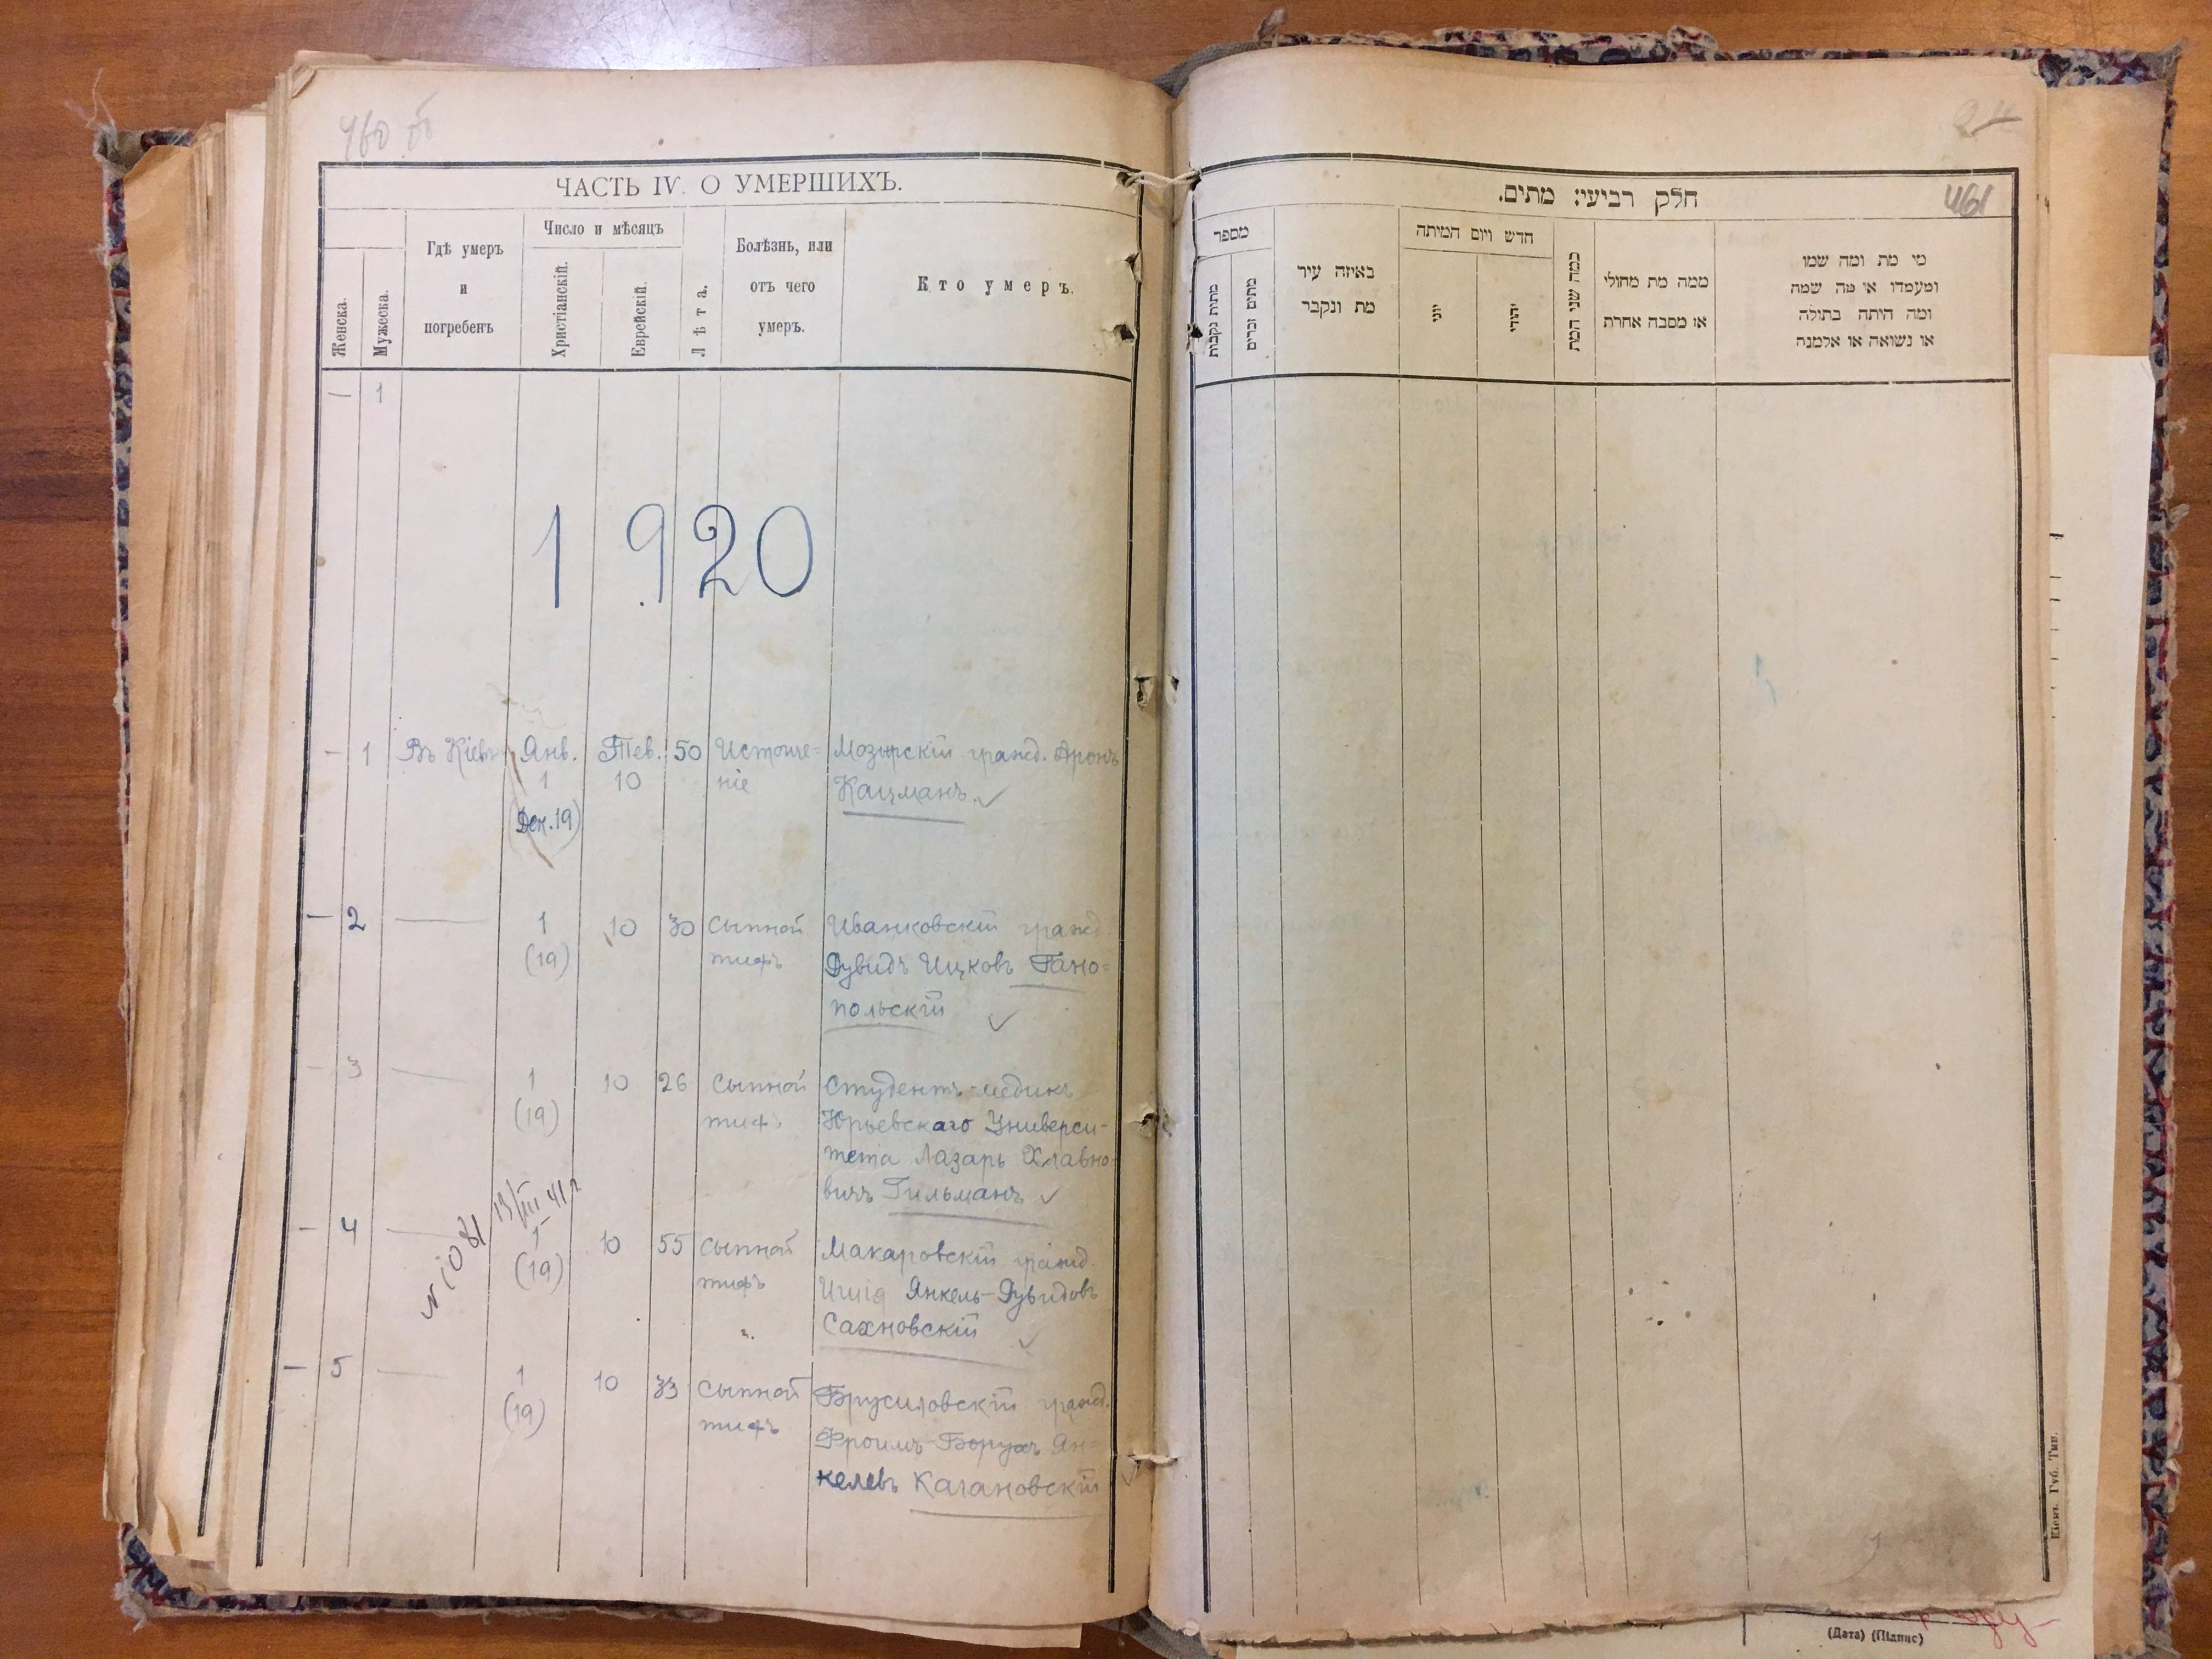 460 об
ЧАСТЬ IV. О УМЕРШИХЪ.
Женска.
Мужеска.
Гдѣ умеръ
и
погребенъ
Число и мѣсяцъ
Христіанскій.
Еврейскій.
Лѣта.
Болѣзнь, или
отъ чего
умеръ.
Кто умеръ.
— 1
1920
— 1 Въ Кіевѣ Янв. Тев. 50 Истоще= Мозырскій гражд. Аронъ
1 10 ніе Кацманъ.
(Дек. 19)
— 2 — 1 10 30 Сыпной Иванковскій гражд.
(19) тифъ Дувидъ Ицковъ Гано=
польскій
— 3 — 1 10 26 Сыпной Студентъ-медикъ
(19) тифъ Юрьевскаго Универси-
тета Лазарь Хлавно-
вичъ Гильманъ
N 1081 13/III 41 г
— 4 — 1 10 55 Сыпной Макаровскій гражд.
(19) тифъ Ишія Янкель-Дувидовъ
Сахновскій
— 5 — 1 10 33 Сыпной Брусиловскій гражд.
(19) тифъ Фроимъ-Борухъ Ян-
келевъ Кагановскій
461
חלק רביעי: מתים.
מספר
מתות נקבות
מתים זכרים
באיזה עיר
מת ונקבר
חדש ויום המיתה
יוני
יהודי
כמה שני המת
ממה מת מחולי
או מסבה אחרת
מי מת ומה שמו
ומעמדו או מה שמה
ומה היתה בתולה
או נשואה או אלמנה
Кіевъ. Губ. Тип.
(Дата) (Підпис)